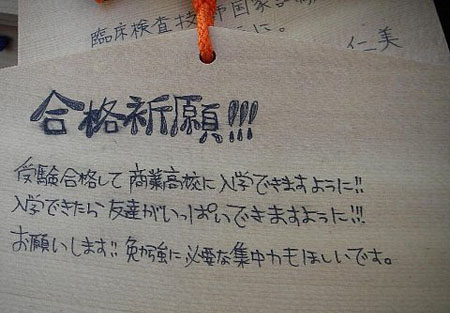 臨床検査技師国家試験
に。
仁美
合格祈願!!!
受験合格して商業高校に入学できますように!!
入学できたら友達がいっぱいできますように!!!
お願いします!! 勉強に必要な集中力もほしいです。